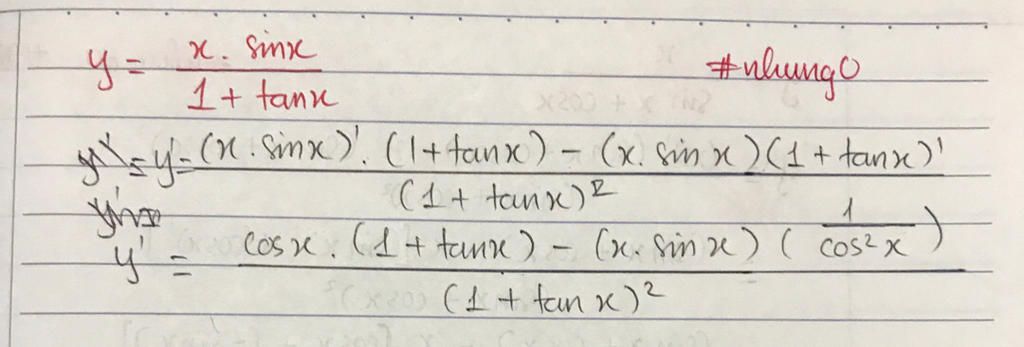 y = x. sinx / 1 + tanx #nhung0
y' = (x. sinx)'. (1+tanx) - (x. sin x)(1 + tanx)' / (1 + tanx)²
y' = cosx. (1 + tanx) - (x. sin x) ( 1 / cos²x ) / (1 + tan x)²